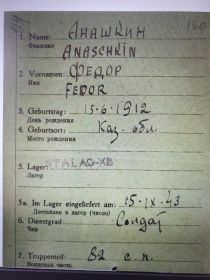 160
1. Name: Анашкин
Фамилия ANASCHKIN
2. Vornamen: Федор
Имя FEDOR
3. Geburtstag: 15-6-1912
День рождения
4. Geburtsort: Каз. обл.
Место рождения
5. Lager: STALAG XB
Лагер
5a. Im Lager eingeliefert am: 5-IX-43
Доставлен в лагер (число)
6. Dienstgrad: Солдат
Чин
7. Truppenteil: 82 с. п.
Воинская часть